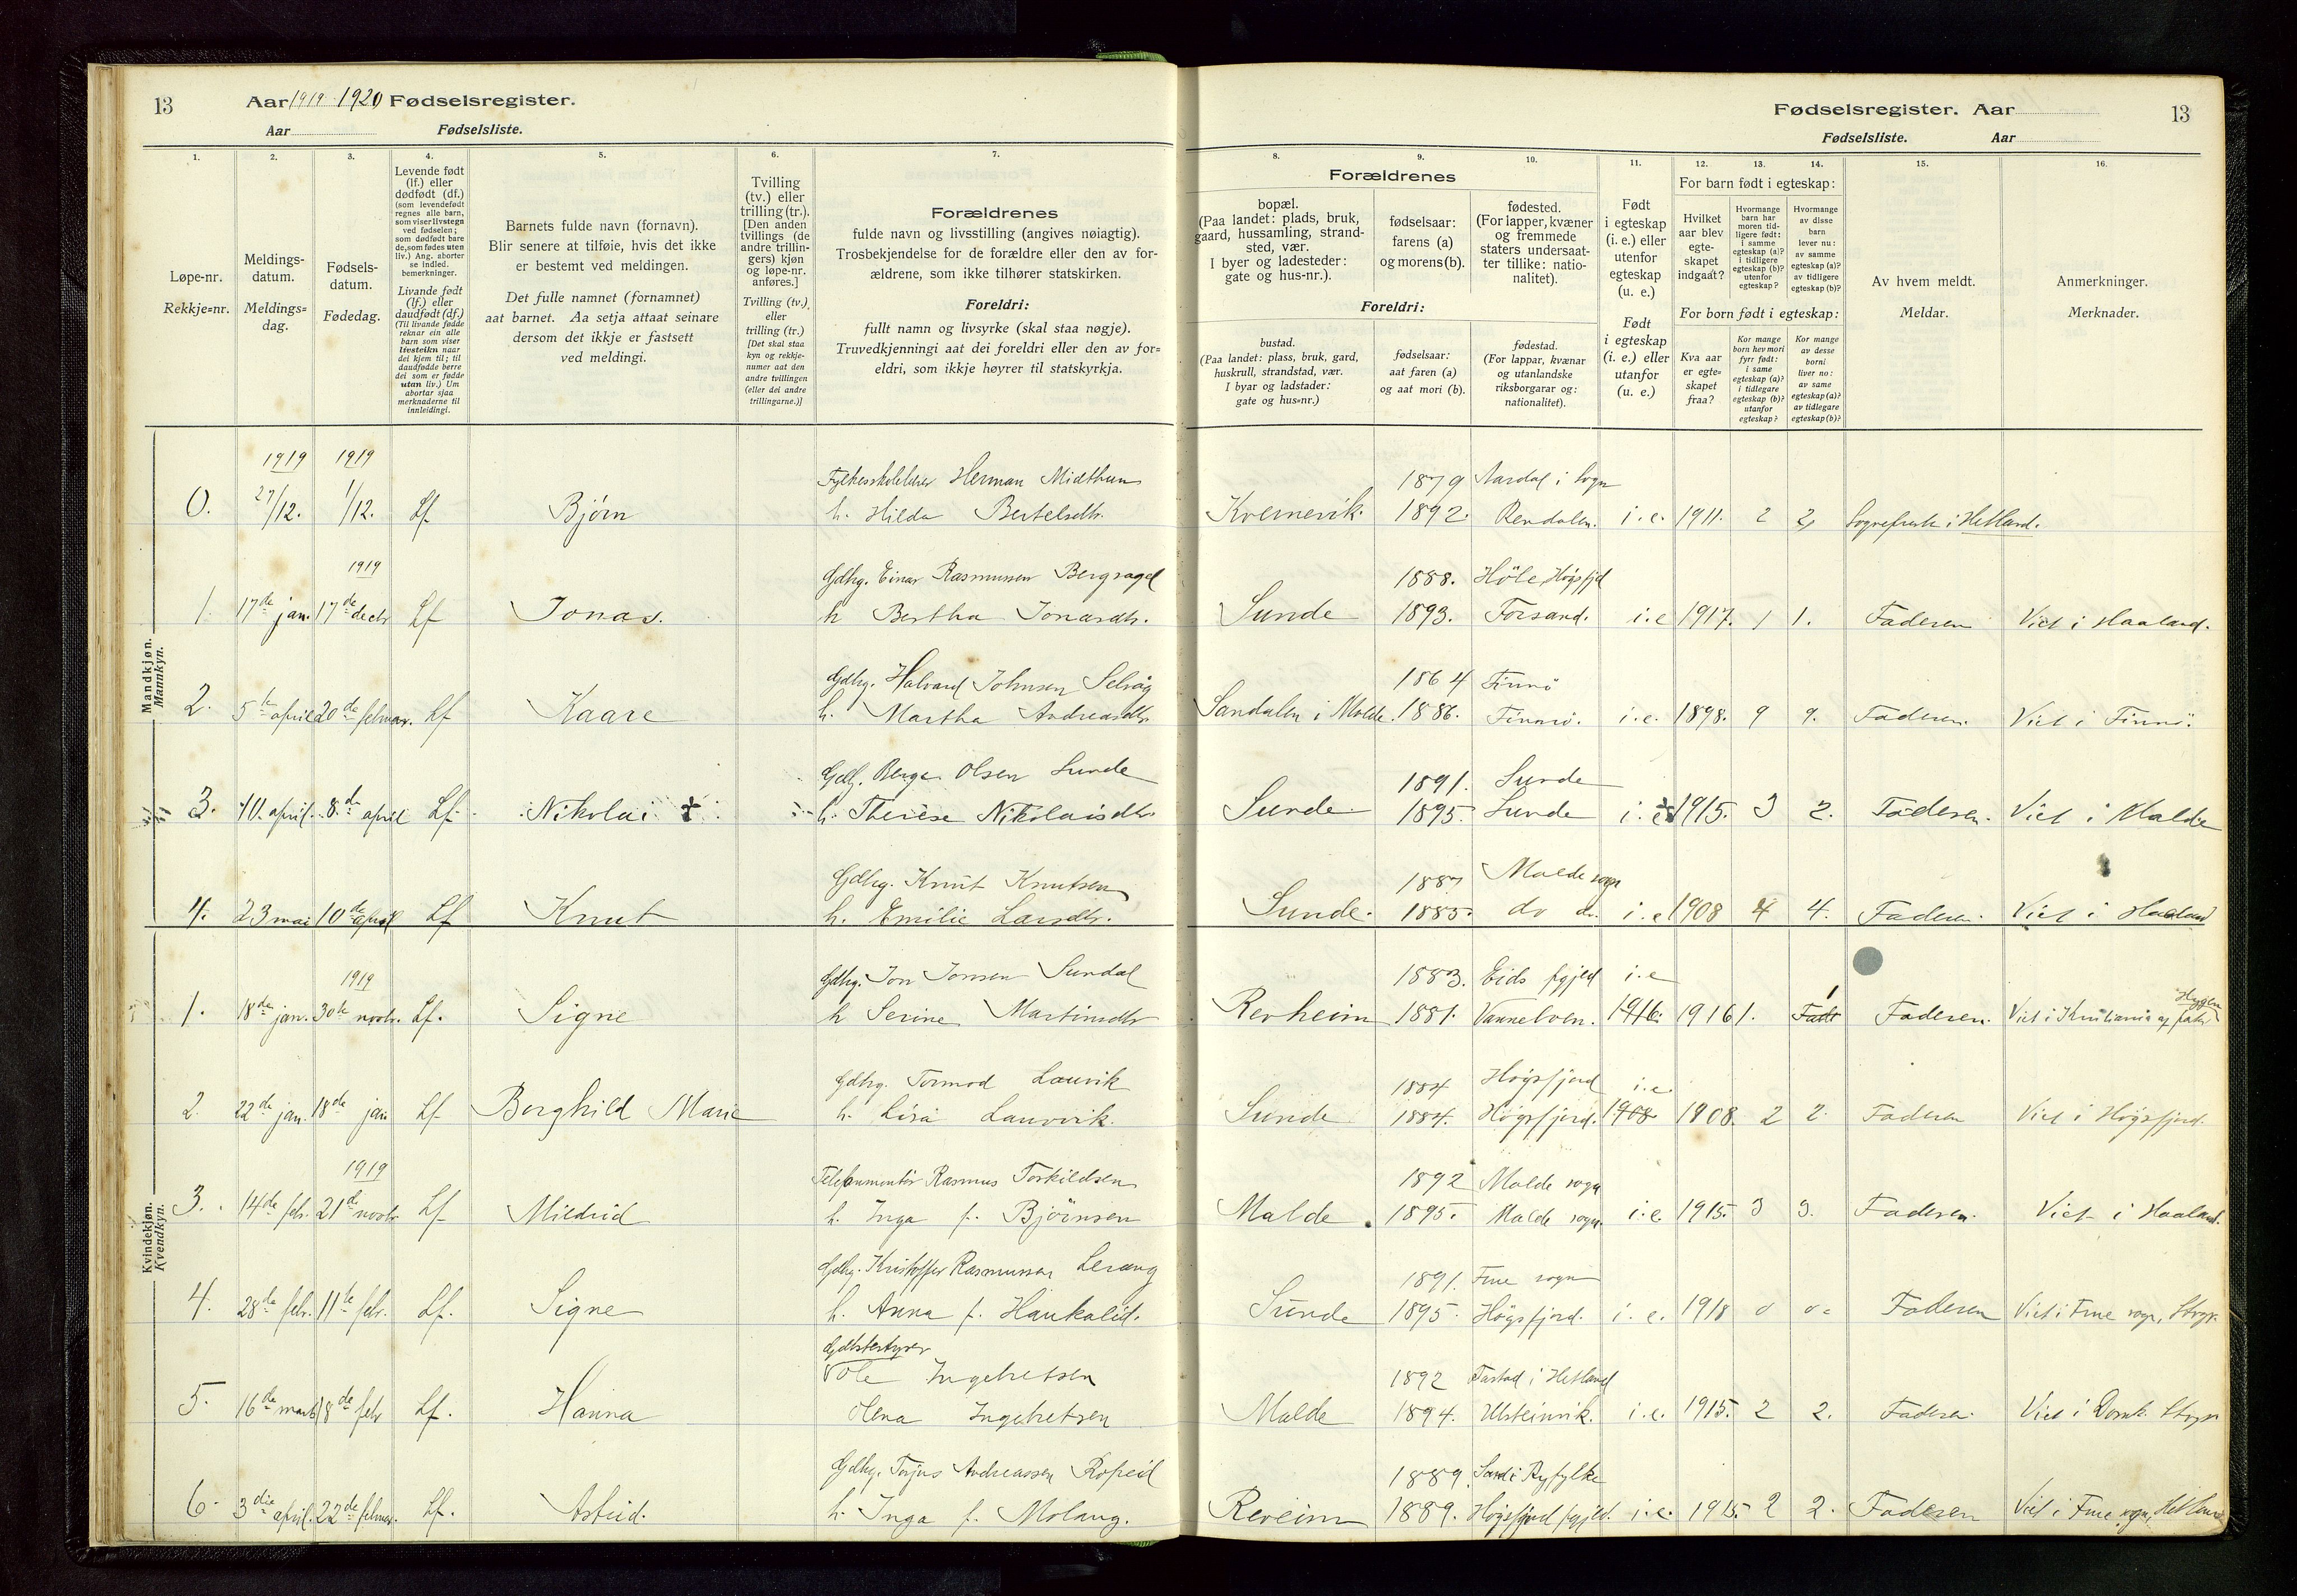 13
Aar 1919 1920 Fødselsregister.
Aar Fødselsliste.
1.
2.
3.
4.
5.
6.
7.
Løpe-nr.
Rekkje=nr.
Meldings-
datum.
Meldings=
dag.
Fødsels-
datum.
Fødedag.
Levende født
(lf.) eller
dødfødt (df.)
(som levendefødt
regnes alle barn,
som viser livstegn
ved fødselen;
som dødfødt bare
de, som fødes uten
liv.) Ang. aborter
se indled.
bemerkninger.
Livande født
(lf.) eller
daudfødt (df.)
(Til livande fødde
reknar ein alle
barn som viser
livsteikn naar
dei kjem til; til
daudfødde berre
dei som er fødde
utan liv.) Um
abortar sjaa
merknaderne til
innleidingi.
Barnets fulde navn (fornavn).
Blir senere at tilføie, hvis det ikke
er bestemt ved meldingen.
Det fulle namnet (fornamnet)
aat barnet. Aa setja attaat seinare
dersom det ikkje er fastsett
ved meldingi.
Tvilling
(tv.) eller
trilling (tr.).
[Den anden
tvillings (de
andre trillin-
gers) kjøn
og løpe-nr.
anføres.]
Tvilling (tv.)
eller
trilling (tr.)
[Det skal staa
kyn og rekkje-
numer aat den
andre tvillingen
(eller dei andre
trillingarne.)]
Forældrenes
fulde navn og livsstilling (angives nøiagtig).
Trosbekjendelse for de forældre eller den av for-
ældrene, som ikke tilhører statskirken.
Foreldri:
fullt namn og livsyrke (skal staa nøgje).
Truvedkjenningi aat dei foreldri eller den av for=
eldri, som ikkje høyrer til statskyrkja.
Fødselsregister. Aar
13
Fødselsliste. Aar
8.
9.
10.
11.
12.
13.
14.
15.
16.
Forældrenes
bopæl.
(Paa landet: plads, bruk,
gaard, hussamling, strand-
sted, vær.
I byer og ladesteder:
gate og hus-nr.).
fødselsaar:
farens (a)
og morens (b).
fødested.
(For lapper, kvæner
og fremmede
staters undersaat-
ter tillike: natio-
nalitet).
Foreldri:
bustad.
(Paa landet: plass, bruk, gard,
huskrull, strandstad, vær.
I byar og ladstader:
gate og hus=nr.)
fødselsaar:
aat faren (a)
og aat mori (b).
fødestad.
(For lappar, kvænar
og utanlandske
riksborgarar og:
nationalitet).
Født
i egteskap
(i. e.) eller
utenfor
egteskap
(u. e.)
Født
i egteskap
(i. e.) eller
utanfor
(u. e.)
For barn født i egteskap:
Hvilket
aar blev
egte-
skapet
indgaat?
Hvormange
barn har
moren tid-
ligere født:
i samme
egteskap (a)?
i tidligere
egteskap (b)?
utenfor
egteskap?
Hvormange
av disse
barn
lever nu:
av samme
egteskap (a)?
av tidligere
egteskap (b)?
For born født i egteskap:
Kva aar
er egte=
skapet
fraa?
Kor mange
born hev mori
fyrr født:
i same
egteskap (a)?
i tidlegare
egteskap (b)?
utanfor
egteskap?
Kor mange
av desse
borni
liver no:
av same
egteskap (a)?
av tidlegare
egteskap (b)?
Av hvem meldt.
Meldar.
Anmerkninger.
Merknader.
Mandkjøn.
Mannkyn.
1919 1919
Fylkesskolelærer Herman Midthun 1879 Aardal i Sogn
0. 27/12. 1/12. Lf. Bjørn h. Hilda Bertelsdtr. Kvernevik. 1892. Rendalen. i. e. 1911. 2 2 Sogneprest i Hetland.
1919 Gdbg. Einar Rasmussen Bergsagel 1888. Höle, Högsfjd
1. 17de jan. 17de decbr Lf Jonas. h Bertha Jonasdtr. Sunde 1893. Forsand. i. e 1917. 1 1. Faderen Viet i Haaland.
Gdbg. Halvard Johnsen Selvåg 1864 Finnö
2. 5te april 20de februar. Lf Kaare h. Martha Andreasdtr Sandalen i Malde. 1886. Finnö. i. e. 1898. 9 9. Faderen. Viet i Finnö.
Gdb. Berge Olsen Sunde 1891. Sunde
3. 10. april. 8de april Lf. Nikolai + h. Therese Nikolaisdtr. Sunde 1895. Sunde i. e 1915. 3 2. Faderen. Viet i Malde
Gdbg. Knut Knutsen 1887 Malde sogn
4. 23 mai 10de april Lf Knut h. Emilie Larsdtr. Sunde. 1885. do do. i. e 1908 4 4. Faderen. Viet i Haaland
Kvindekjøn.
Kvendkyn.
1919 Gdbg. Jon Jonsen Sundal 1883. Eids pgjeld i. e
1. 18de jan. 30te novbr. Lf. Signe h Serine Martinsdtr Revheim 1881. Vannelven. 1916. 1916 1. 1 Fade Faderen. Viet i Kristiania af pastor Hygen
Gdbg. Tormod Lauvik 1884 Högsfjord i. e.
2. 22de jan. 18de jan Lf Borghild Marie h. Lisa Lauvvik. Sunde 1884. Högsfjord. 1908 1908. 2 2. Faderen Viet i Högsfjord.
1919 Telefonmontör Rasmus Torkildsen 1892 Malde sogn
3. 14de febr. 21de novbr Lf Mildrid h. Inga f. Björnsen Malde 1895. Malde sogn. i. e. 1915. 3 3. Faderen. Viet i Haaland.
Gdbg. Kristoffer Rasmussen Lerang 1891. Frue sogn
4. 28de febr. 11te febr. Lf. Signe h. Anna f. Haukalid. Sunde 1895. Högsfjord. i. e. 1918 0 0 Faderen Viet i Frue sogn, Stvgr.
Gdbstestyrer
Ole Ingebretsen 1892 Tastad i Hetland
5. 16de marts 18de febr Lf. Hanna Olena Ingebretsen Malde 1894. Ulsteinvik. i. e. 1915. 2 2. Faderen. Viet i Domk. Stvgr.
Gdbg. Torjus Andreassen Ropeid 1889. Sand i Ryfylke
6. 3die april. 22de februar. Lf. Astrid. h. Inga f. Molaug. Reveim 1889. Högsfjord pgjeld. i. e. 1915. 2 2. Faderen Viet i Frue sogn, Hetland